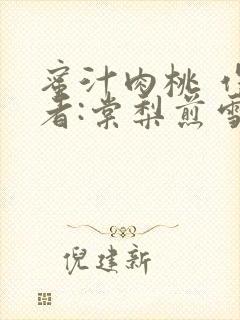 蜜汁肉桃 作
者:棠梨煎雪
倪建新